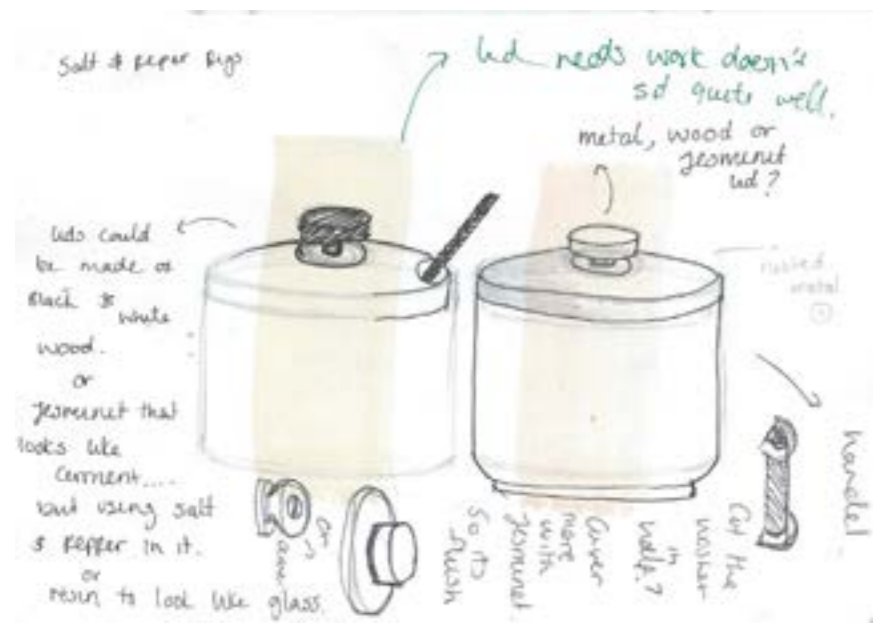 Salt & Peper Pigs
Lid needs work doesn't
sit quite well.
metal, wood or
Jesmenit
lid?
lids could
be made of
Black & white
wood.
or
Jesmenit that
looks like
Cement....
but using salt
& Pepper in it.
or
resin to look like glass.
metal
handel
Cut the
washer
in
half?
Cover
more
with
Jesmenit
So its
flush
or